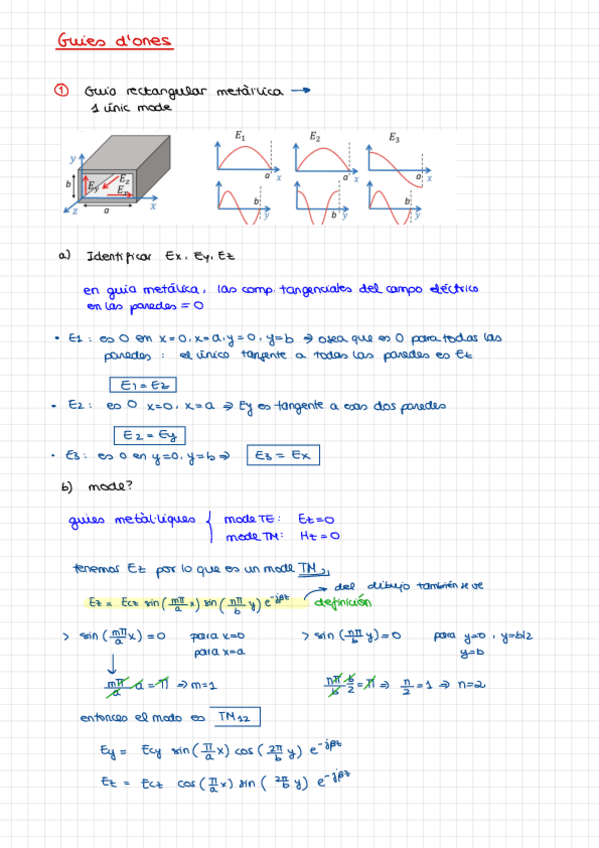 Guies d'ones
① Guia rectangular metàl·lica →
1 únic mode
y b Ey Ez Ex z a x
E₁ a x
E₂ a x
E₃ a x
b y
b y
b y
a) Identificar Ex, Ey, Ez
en guia metálica, las comp. tangenciales del campo eléctrico
en las paredes = 0
• E1: es 0 en x=0, x=a, y=0, y=b ⇒ osea que es 0 para todas las
paredes: el único tangente a todas las paredes es Ez
E1 = Ez
• E2: es 0 x=0, x=a ⇒ Ey es tangente a esas dos paredes
E2 = Ey
• E3: es 0 en y=0, y=b ⇒ E3 = Ex
b) mode?
guies metàl·liques { mode TE: Ez=0
mode TM: Hz=0
tenemos Ez por lo que es un mode TM
→ del dibujo también se ve
Ez = Ecz sin(mπ/a x) sin(nπ/b y) e^-jβz definición
> sin(mπ/a x) = 0 para x=0 > sin(nπ/b y) = 0 para y=0, y=b/2
para x=a y=b
↓
mπ/a a = π ⇒ m=1 nπ/b b/2 = π ⇒ n/2 = 1 ⇒ n=2
entonces el modo es TM₁₂
Ey = Ecy sin(π/a x) cos(2π/b y) e^-jβz
Ez = Ecz cos(π/a x) sin(2π/b y) e^-jβz